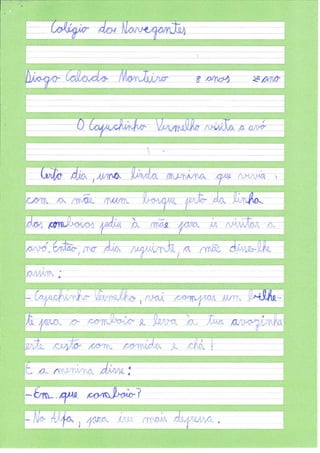 Colégio dos Navegantes
Diogo Calado Monteiro 8 anos 2º ano
O Capuchinho Vermelho visita a avó
Certo dia, uma linda menina que vivia
com a mãe num bosque perto da linha
dos comboios pediu à mãe para ir visitar a
avó. Então, no dia seguinte, a mãe disse-lhe
assim:
- Capuchinho Vermelho, vai comprar um bilhe-
te para o comboio e leva à tua avozinha
este cesto com comida e chá!
E a menina disse:
- Em que comboio?
- No Alfa, para ires mais depressa.